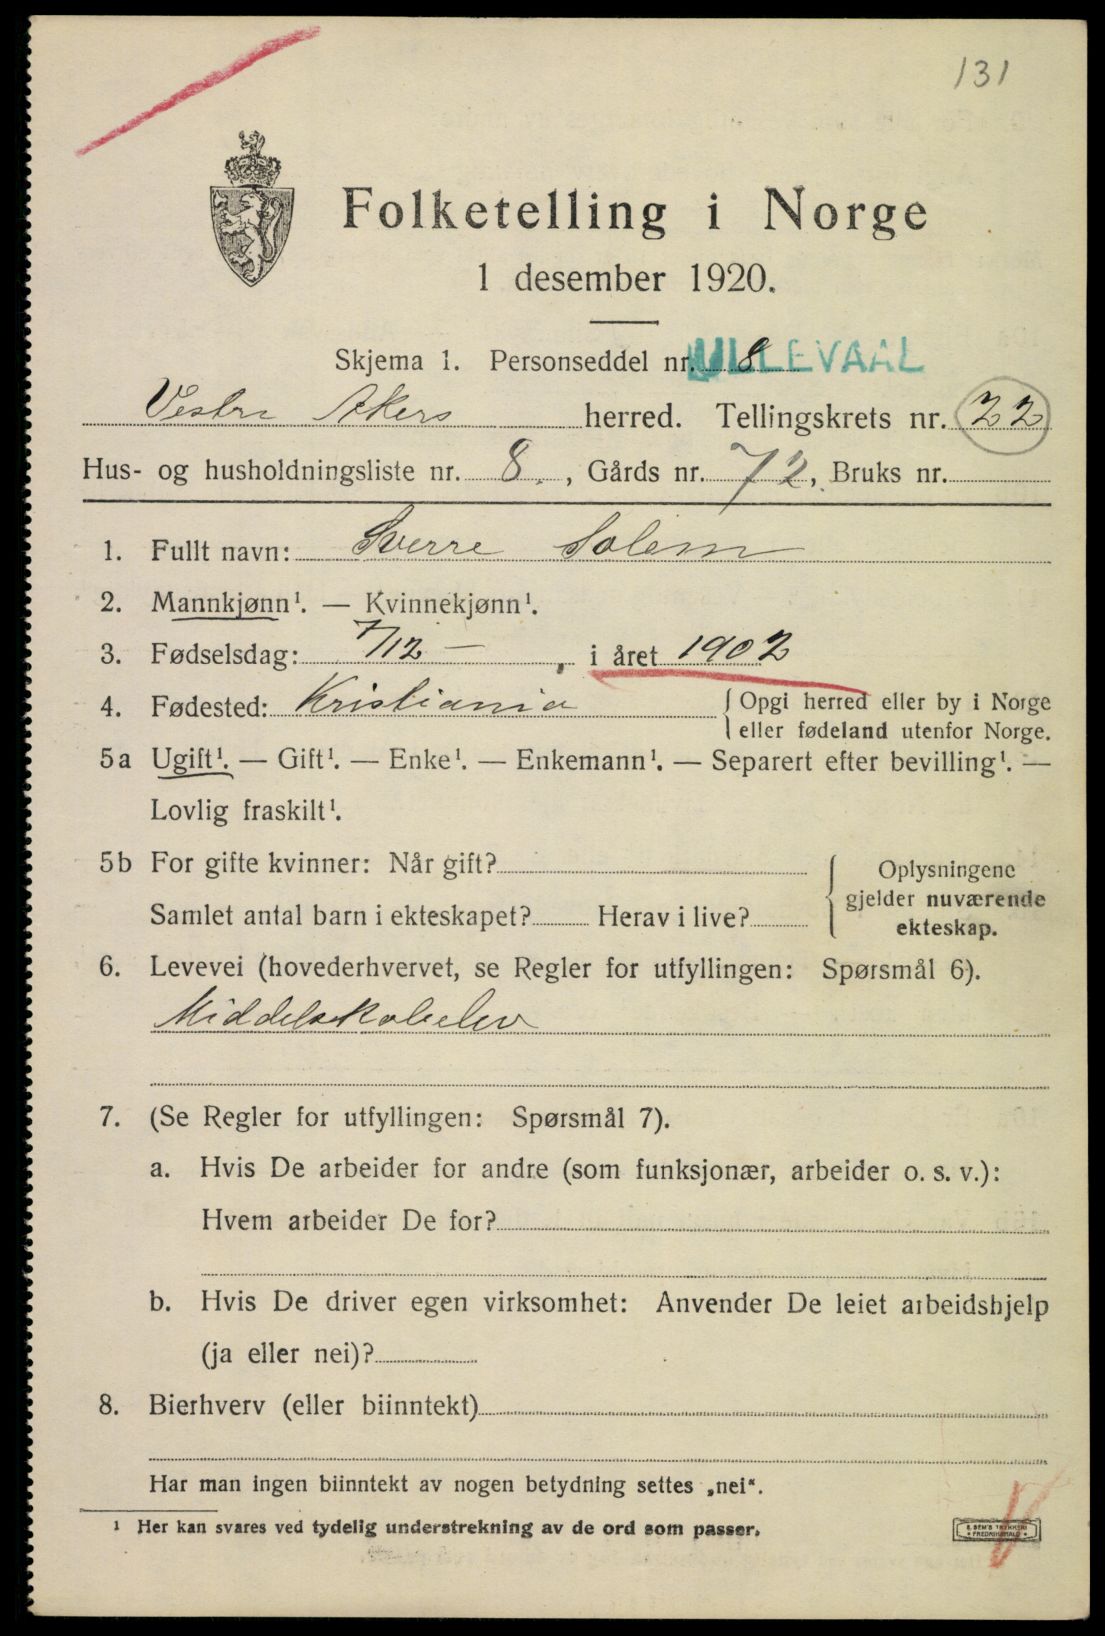 131
Folketelling i Norge
1 desember 1920.
Skjema 1. Personseddel nr. 8 ULLEVAAL
Vestre Akers herred. Tellingskrets nr. 22
Hus- og husholdningsliste nr. 8. , Gårds nr. 72, Bruks nr.
1. Fullt navn: Sverre Solem
2. Mannkjønn¹. — Kvinnekjønn¹.
3. Fødselsdag: 7/12 — , i året 1902
4. Fødested: Kristiania { Opgi herred eller by i Norge
eller fødeland utenfor Norge.
5a Ugift¹. — Gift¹. — Enke¹. — Enkemann¹. — Separert efter bevilling¹. —
Lovlig fraskilt¹.
5b For gifte kvinner: Når gift?
Samlet antal barn i ekteskapet? Herav i live?
Oplysningene
gjelder nuværende
ekteskap.
6. Levevei (hovederhvervet, se Regler for utfyllingen: Spørsmål 6).
Middelskoleelev
7. (Se Regler for utfyllingen: Spørsmål 7).
a. Hvis De arbeider for andre (som funksjonær, arbeider o. s. v.):
Hvem arbeider De for?
b. Hvis De driver egen virksomhet: Anvender De leiet arbeidshjelp
(ja eller nei)?
8. Bierhverv (eller biinntekt)
Har man ingen biinntekt av nogen betydning settes „nei“.
¹ Her kan svares ved tydelig understrekning av de ord som passer.
E. SEM'S TRYKKERI
FREDRIKSHALD